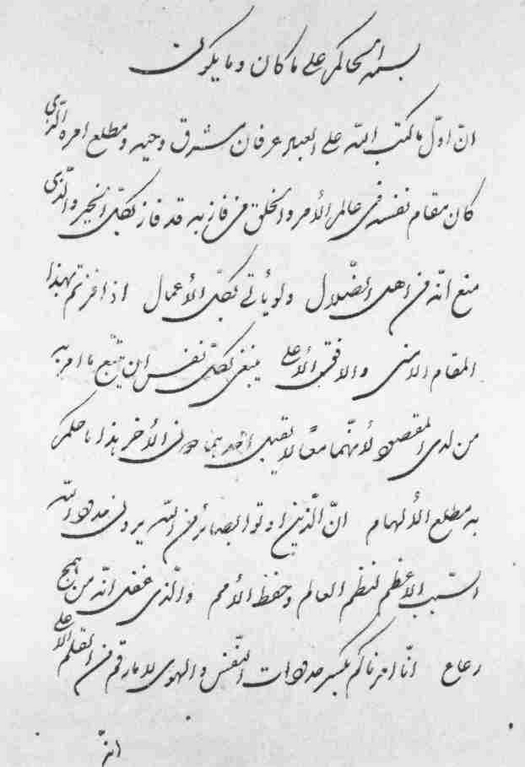 بسمه الحاکم علی ما کان و ما یکون
ان اول ما کتب الله علی العباد عرفان مشرق وحیه و مطلع امره الذی
کان مقام نفسه فی عالم الأمر و الخلق من فاز به قد فاز بکل الخیر و الذی
منع انه من اهل الضلال ولو یأتی بکل الأعمال اذا فزتم بهذا
المقام الاسنی والافق الأعلی ینبغی لکل نفس ان یتبع ما امر به
من لدی المقصود لأنهما معاً لا یقبل احدهما دون الأخر هذا ما حکم
به مطلع الألهام ان الذین اوتوا بصائر من الله یرون حدود الله
السبب الأعظم لنظم العالم و حفظ الأمم والذی غفل انه من همج
رعاع انا امرناکم بکسر حدودات النفس و الهوی لا ما رقم من القلم الأعلی
انه